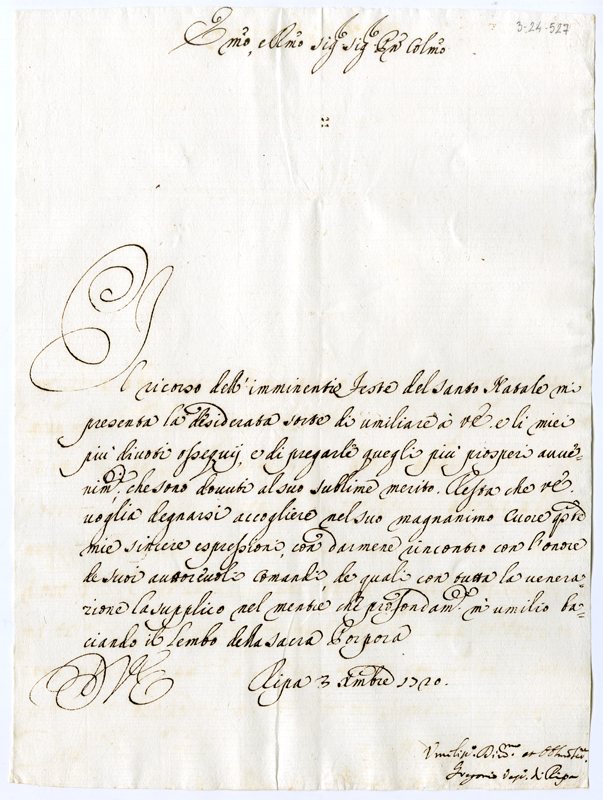 3-24-527
Emo, e Rmo Sig.r Sig.r Pñ Colmo
Il ricorso dell'imminenti Feste del Santo Natale mi
presenta la desiderata sorte di umiliare à VE. e li miei
più divoti ossequij, e di pregarle quegli più prosperi avve-
nim.ti che sono dovuti al suo sublime merito. Resta che VE.
voglia degnarsi accogliere nel suo magnanimo Cuore qste
mie sincere espressioni, con darmene rincontro con l'onore
de suoi autorevoli Comandi, de quali con tutta la venera-
zione la supplico nel mentre che profondam.te m'umilio ba-
ciando il Lembo della Sacra Porpora
DVE Ripa 3 Xmbre 1720.
Umiliss.o Div.mo et Obl.mo
Gregorio Vesc.o di Ripa